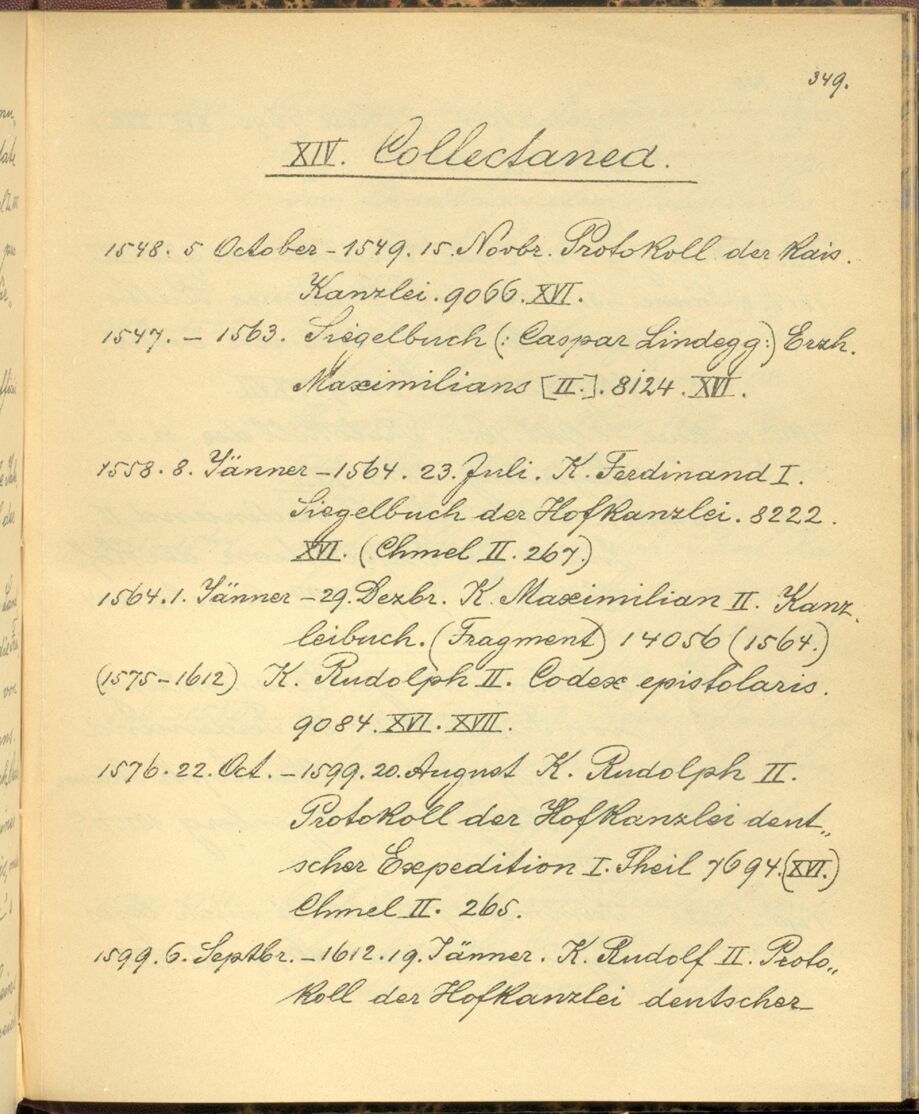 349.
XIV. Collectanea.
1548. 5 October - 1549. 15. Novbr. Protokoll der kais.
Kanzlei. 9066. XVI.
1547. - 1563. Siegelbuch (: Caspar Lindegg:) Erzh.
Maximilians [II.]. 8124. XVI.
1558. 8. Jänner - 1564. 23. Juli. K. Ferdinand I.
Siegelbuch der Hofkanzlei. 8222.
XVI. (Chmel II. 267)
1564. 1. Jänner - 29. Dezbr. K. Maximilian II. Kanz„
leibuch. (Fragment) 14056 (1564.)
(1575-1612) K. Rudolph II. Codex epistolaris.
9084. XVI. XVII.
1576. 22. Oct. - 1599. 20. August K. Rudolph II.
Protokoll der Hofkanzlei deut„
scher Expedition I. Theil 7694. (XVI.)
Chmel II. 265.
1599. 6. Septbr. - 1612. 19. Jänner. K. Rudolf II. Proto„
koll der Hofkanzlei deutscher